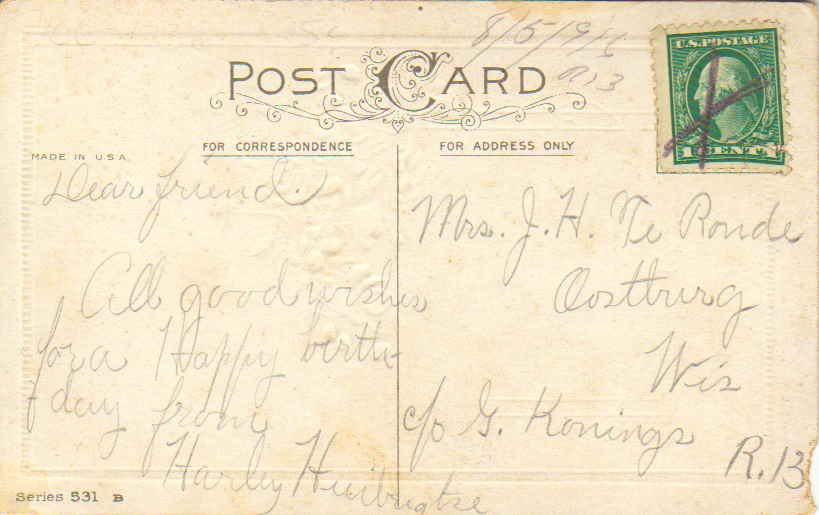 8/5/916
R13
POST CARD
U.S. POSTAGE
1 CENT 1
FOR CORRESPONDENCE
FOR ADDRESS ONLY
MADE IN U.S.A.
Dear friend.
All good wishes
for a Happy birth-
day from
Harley Huibregtse
Mrs. J. H. Te Ronde
Oostburg
Wis
c/o G. Konings
R. 13
Series 531 B